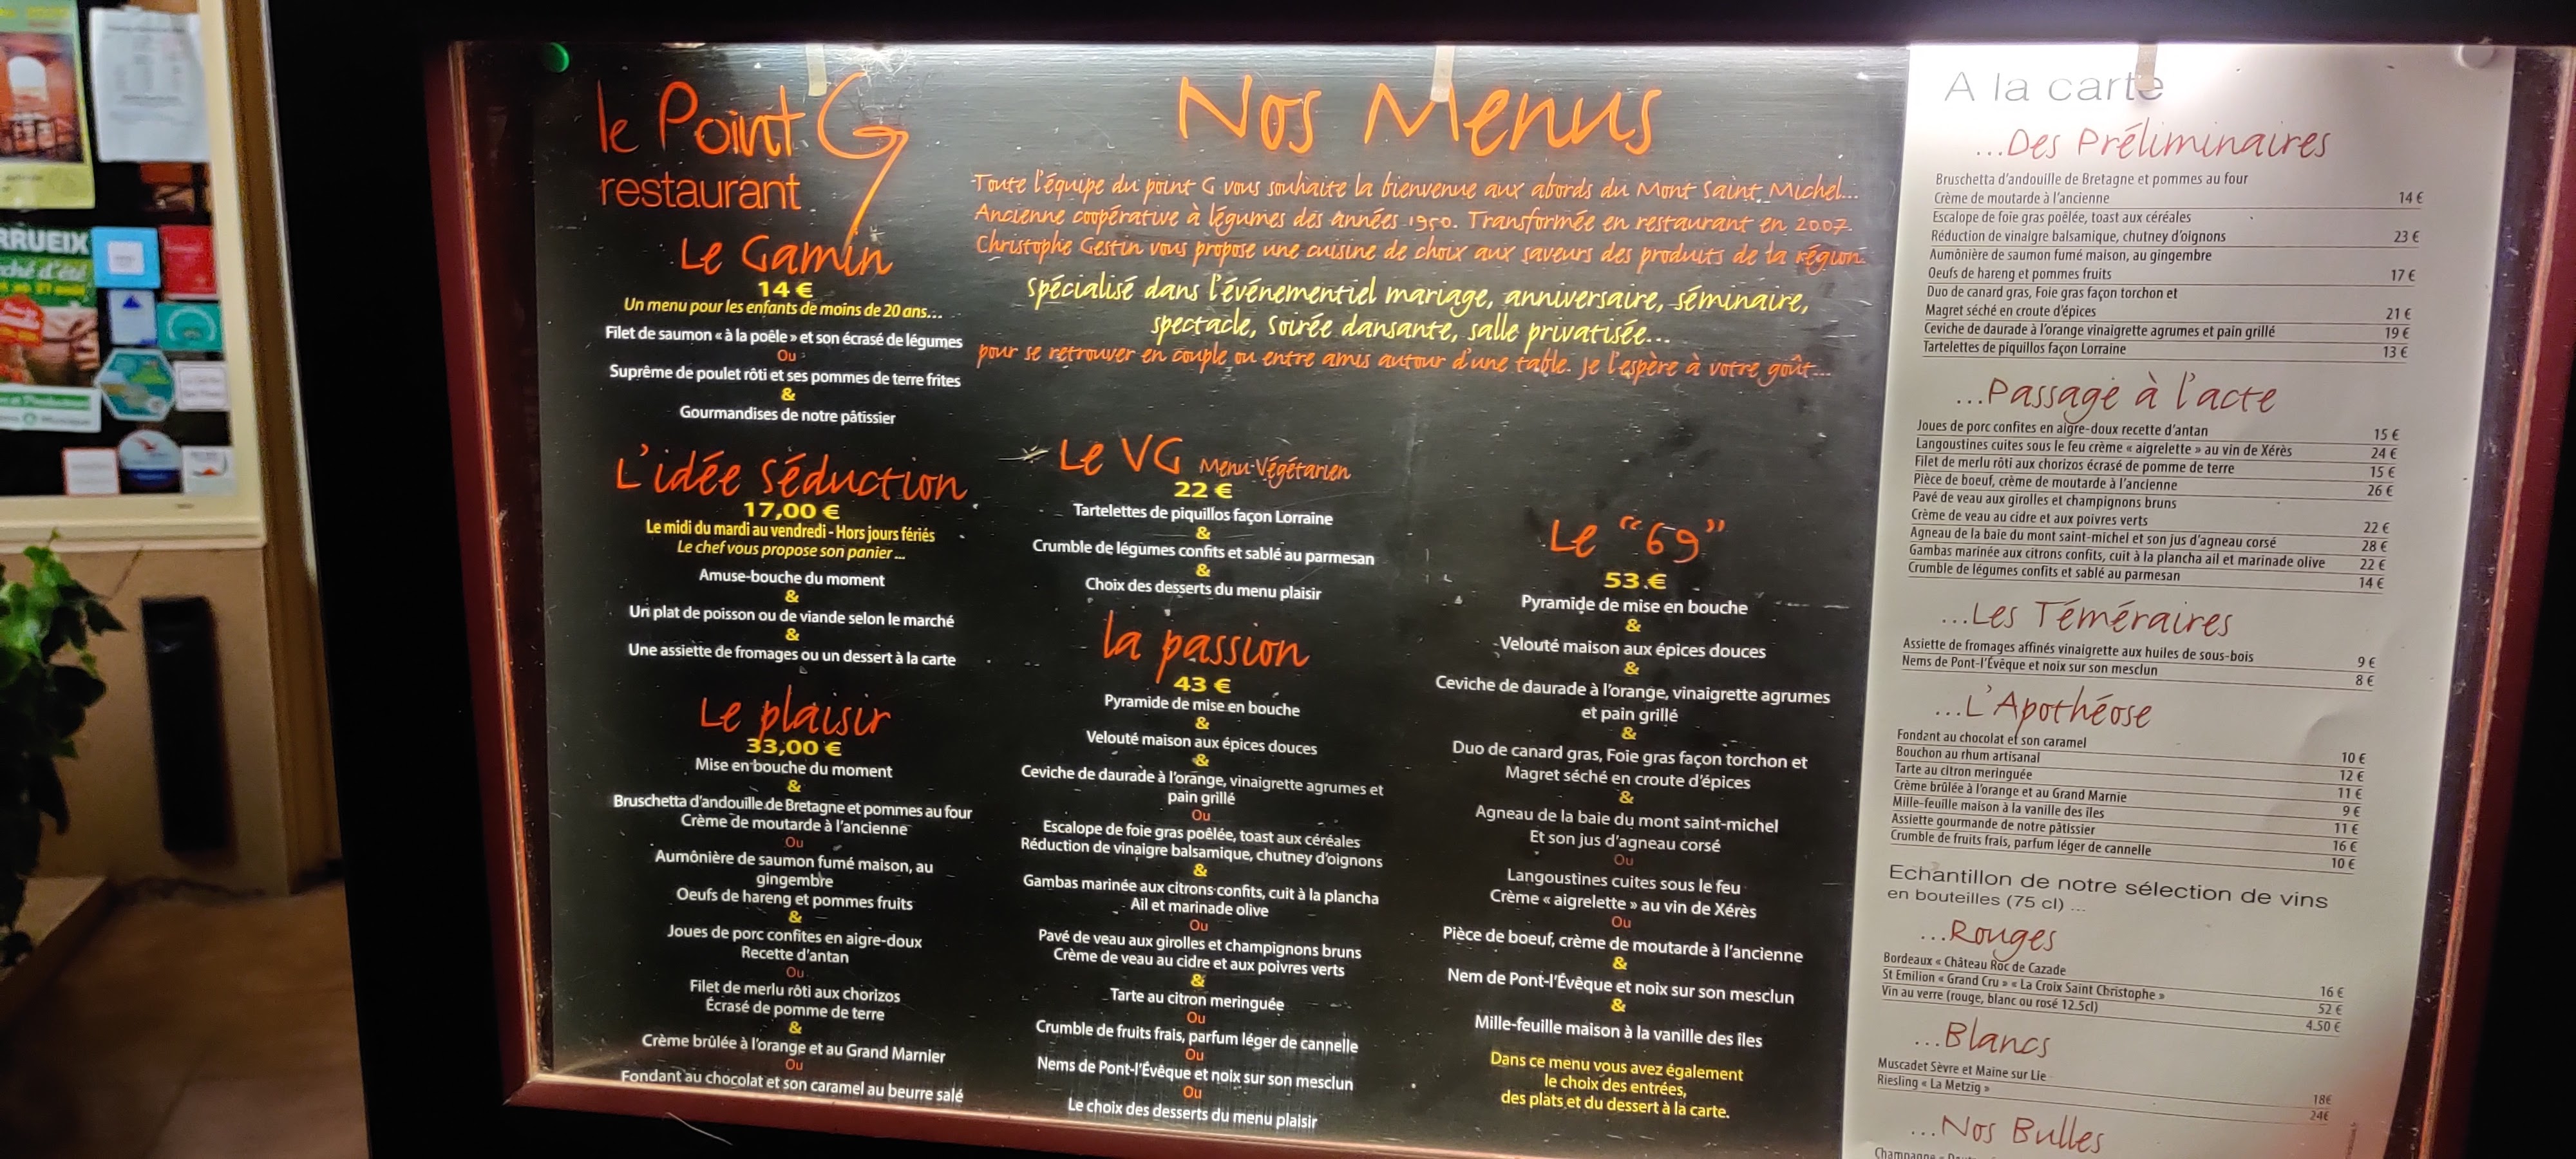 RRUEIX
le Point G
restaurant
Le Gamin
14 €
Un menu pour les enfants de moins de 20 ans...
Filet de saumon « à la poêle » et son écrasé de légumes
Ou
Suprême de poulet rôti et ses pommes de terre frites
&
Gourmandises de notre pâtissier
L'idée séduction
17,00 €
Le midi du mardi au vendredi - Hors jours fériés
Le chef vous propose son panier ...
Amuse-bouche du moment
&
Un plat de poisson ou de viande selon le marché
&
Une assiette de fromages ou un dessert à la carte
Le plaisir
33,00 €
Mise en bouche du moment
&
Bruschetta d'andouille de Bretagne et pommes au four
Crème de moutarde à l'ancienne
Ou
Aumônière de saumon fumé maison, au
gingembre
Oeufs de hareng et pommes fruits
&
Joues de porc confites en aigre-doux
Recette d'antan
Ou
Filet de merlu rôti aux chorizos
Écrasé de pomme de terre
&
Crème brûlée à l'orange et au Grand Marnier
Ou
Fondant au chocolat et son caramel au beurre salé
Nos Menus
Toute l'équipe du point G vous souhaite la bienvenue aux abords du Mont Saint Michel...
Ancienne coopérative à légumes des années 1950. Transformée en restaurant en 2007.
Christophe Gestin vous propose une cuisine de choix aux saveurs des produits de la région.
Spécialisé dans l'événementiel mariage, anniversaire, séminaire,
spectacle, Soirée dansante, salle privatisée...
pour se retrouver en couple ou entre amis autour d'une table. Je l'espère à votre goût...
Le VG Menu Végétarien
22 €
Tartelettes de piquillos façon Lorraine
&
Crumble de légumes confits et sablé au parmesan
&
Choix des desserts du menu plaisir
la passion
43 €
Pyramide de mise en bouche
&
Velouté maison aux épices douces
&
Ceviche de daurade à l'orange, vinaigrette agrumes et
pain grillé
Ou
Escalope de foie gras poêlée, toast aux céréales
Réduction de vinaigre balsamique, chutney d'oignons
&
Gambas marinée aux citrons confits, cuit à la plancha
Ail et marinade olive
Ou
Pavé de veau aux girolles et champignons bruns
Crème de veau au cidre et aux poivres verts
&
Tarte au citron meringuée
Ou
Crumble de fruits frais, parfum léger de cannelle
Ou
Nems de Pont-l'Évêque et noix sur son mesclun
Ou
Le choix des desserts du menu plaisir
Le "69"
53 €
Pyramide de mise en bouche
&
Velouté maison aux épices douces
&
Ceviche de daurade à l'orange, vinaigrette agrumes
et pain grillé
&
Duo de canard gras, Foie gras façon torchon et
Magret séché en croute d'épices
&
Agneau de la baie du mont saint-michel
Et son jus d'agneau corsé
Ou
Langoustines cuites sous le feu
Crème « aigrelette » au vin de Xérès
Ou
Pièce de boeuf, crème de moutarde à l'ancienne
&
Nem de Pont-l'Évêque et noix sur son mesclun
&
Mille-feuille maison à la vanille des îles
Dans ce menu vous avez également
le choix des entrées,
des plats et du dessert à la carte.
A la carte
...Des Préliminaires
Bruschetta d'andouille de Bretagne et pommes au four
Crème de moutarde à l'ancienne 14 €
Escalope de foie gras poêlée, toast aux céréales
Réduction de vinaigre balsamique, chutney d'oignons 23 €
Aumônière de saumon fumé maison, au gingembre
Oeufs de hareng et pommes fruits 17 €
Duo de canard gras, Foie gras façon torchon et
Magret séché en croute d'épices 21 €
Ceviche de daurade à l'orange vinaigrette agrumes et pain grillé 19 €
Tartelettes de piquillos façon Lorraine 13 €
...Passage à l'acte
Joues de porc confites en aigre-doux recette d'antan 15 €
Langoustines cuites sous le feu crème « aigrelette » au vin de Xérès 24 €
Filet de merlu rôti aux chorizos écrasé de pomme de terre 15 €
Pièce de boeuf, crème de moutarde à l'ancienne 26 €
Pavé de veau aux girolles et champignons bruns
Crème de veau au cidre et aux poivres verts 22 €
Agneau de la baie du mont saint-michel et son jus d'agneau corsé 28 €
Gambas marinée aux citrons confits, cuit à la plancha ail et marinade olive 22 €
Crumble de légumes confits et sablé au parmesan 14 €
...Les Téméraires
Assiette de fromages affinés vinaigrette aux huiles de sous-bois 9 €
Nems de Pont-l'Évêque et noix sur son mesclun 8 €
...L'Apothéose
Fondant au chocolat et son caramel 10 €
Bouchon au rhum artisanal 12 €
Tarte au citron meringuée 11 €
Crème brûlée à l'orange et au Grand Marnie 9 €
Mille-feuille maison à la vanille des îles 11 €
Assiette gourmande de notre pâtissier 16 €
Crumble de fruits frais, parfum léger de cannelle 10 €
Echantillon de notre sélection de vins
en bouteilles (75 cl) ...
...Rouges
Bordeaux « Château Roc de Cazade 16 €
St Emilion « Grand Cru » « La Croix Saint Christophe » 52 €
Vin au verre (rouge, blanc ou rosé 12.5cl) 4.50 €
...Blancs
Muscadet Sèvre et Maine sur Lie 18€
Riesling « La Metzig » 24€
...Nos Bulles